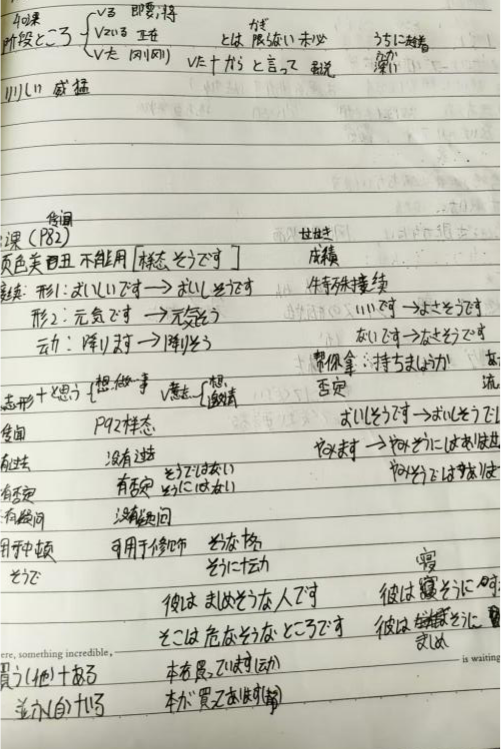 40课
Vる 即要,将
阶段ところ Vている 正在
Vた 刚刚
とは限らない 未必
かぎ
うちに 趁着
Vた+からと言って 虽说
りりしい 威猛
传闻
课 (P82)
颜色美丑 不能用 [样态 そうです]
成績
接续: 形1: おいしいです→おいしそうです
特殊接续
形2: 元気です →元気そう
いいです→よさそうです
动: 降ります→降りそう
ないです→なさそうです
帮你拿: 持ちましょうか
志形+と思う 想做一事
V意志 想, 邀请
否定
流
传闻 P92样态
おいしそうです→おいしそうでし
有过去 没有过去
やみます →やみそうにはありませ
有否定 有否定 そうではない
そうにはない
やみそうではありま
没有疑问 没有疑问
用于中顿 可用于修饰 そうな+名
そうで そうに+动
寝
彼は まじめそうな人です
彼は そうに
そこは 危なそうなところです
彼は そうに
まじめ
ere, something incredible,
is waiting
買う(他)+ある 本を買っています(动)
並ぶ(自)+いる 本が買ってあります